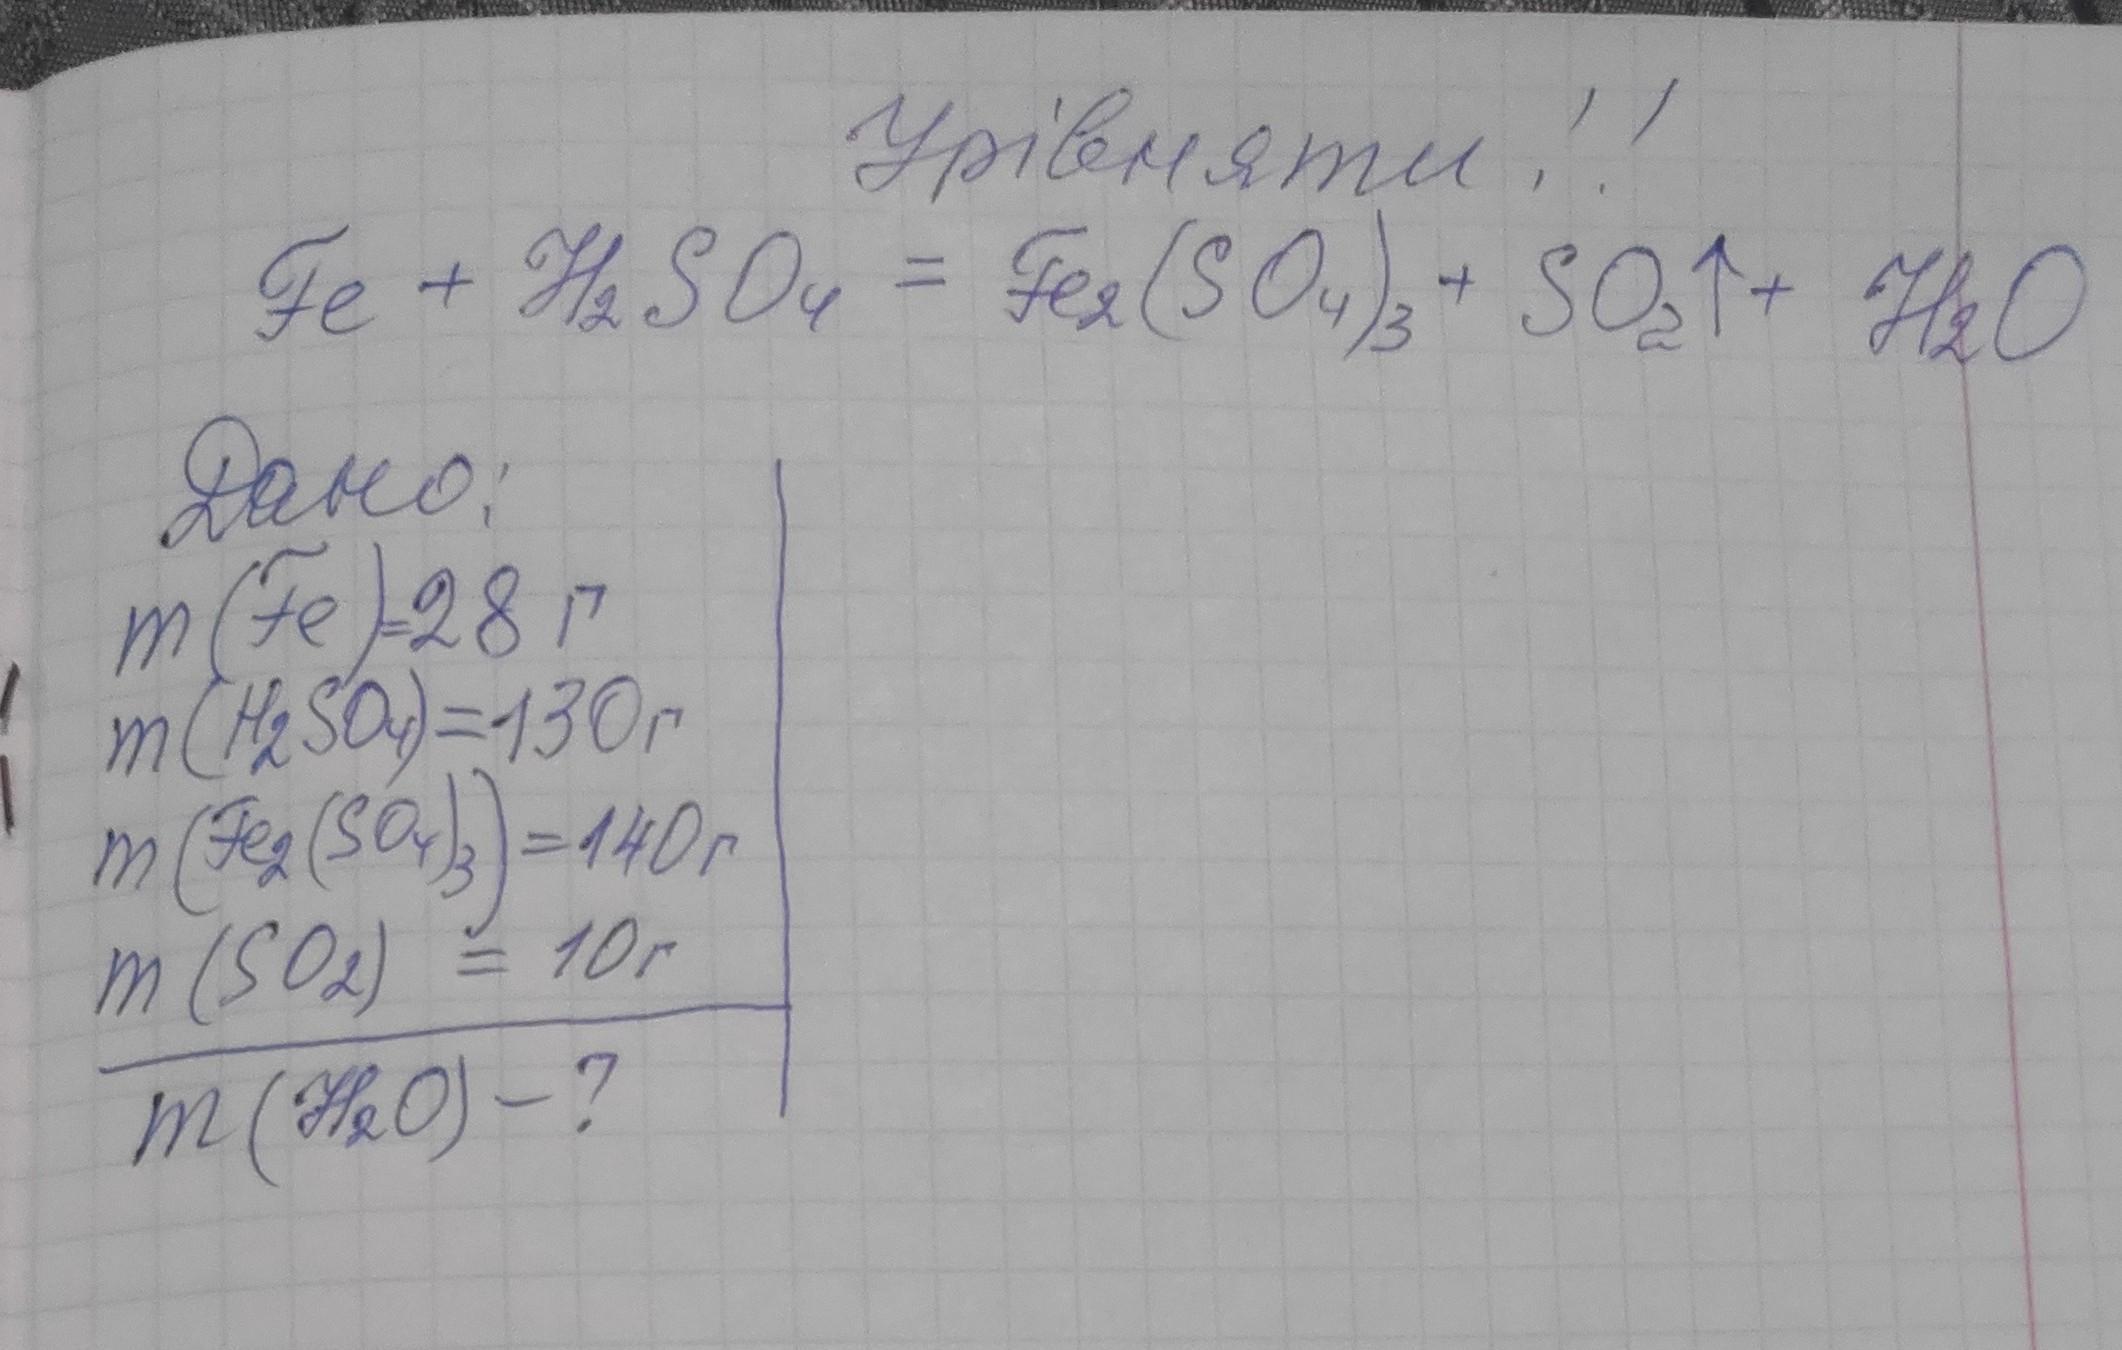 Урівняти!!
Fe + H₂SO₄ = Fe₂(SO₄)₃ + SO₂↑ + H₂O
Дано:
m(Fe)=28 г
m(H₂SO₄)=130г
m(Fe₂(SO₄)₃)=140г
m(SO₂) = 10г
m(H₂O) – ?